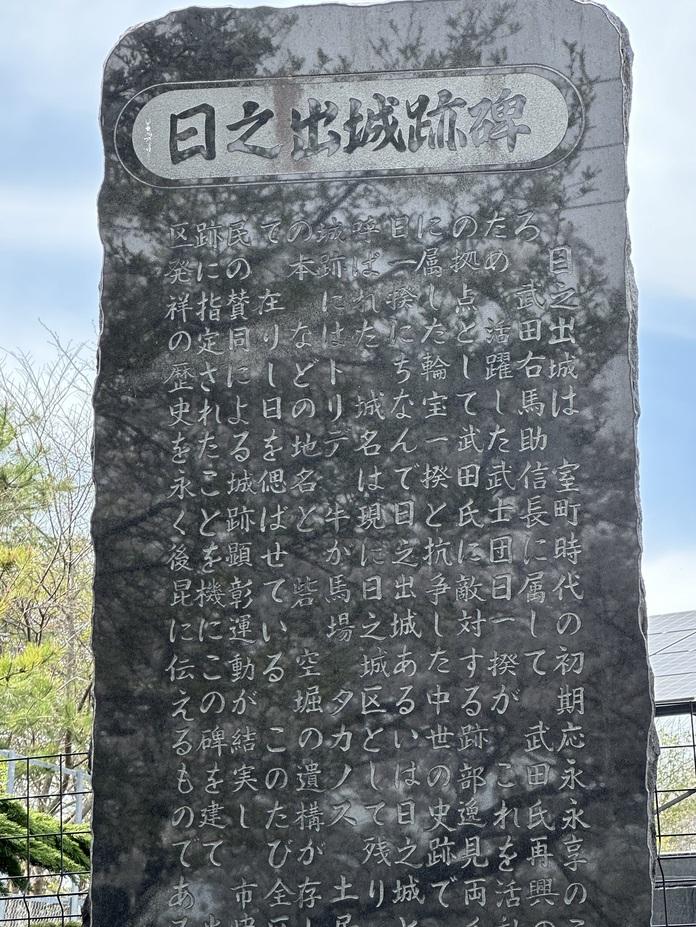 日之出城跡碑
日之出城は 室町時代の初期応永永享のこ
ろ 武田右馬助信長に属して 武田氏再興の
ため 活躍した武士団日一揆が これを活動
の拠点として武田氏に敵対する跡部逸見両
に属した輪宝一揆と抗争した中世の史跡で
日一揆にちなんで日之出城あるいは日之城と
呼ばれた 城名は現に日之城区として残り
城跡にはトリデ 牛が馬場 タカノス 土居
の本 などの地名と 砦 空堀の遺構が存し
て 在りし日を偲ばせている このたび全区
民の賛同による城跡顕彰運動が結実し 市
跡に指定されたことを機にこの碑を建て
区発祥の歴史を永く後昆に伝えるものである